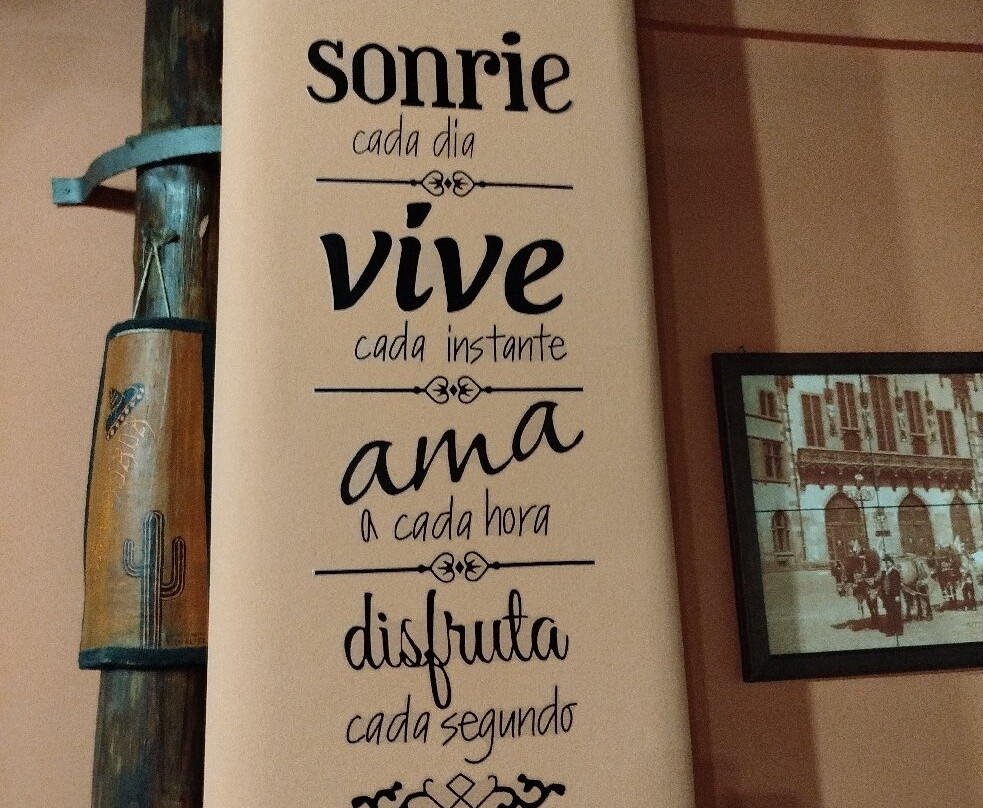 sonrie
cada dia
vive
cada instante
ama
a cada hora
disfruta
cada segundo